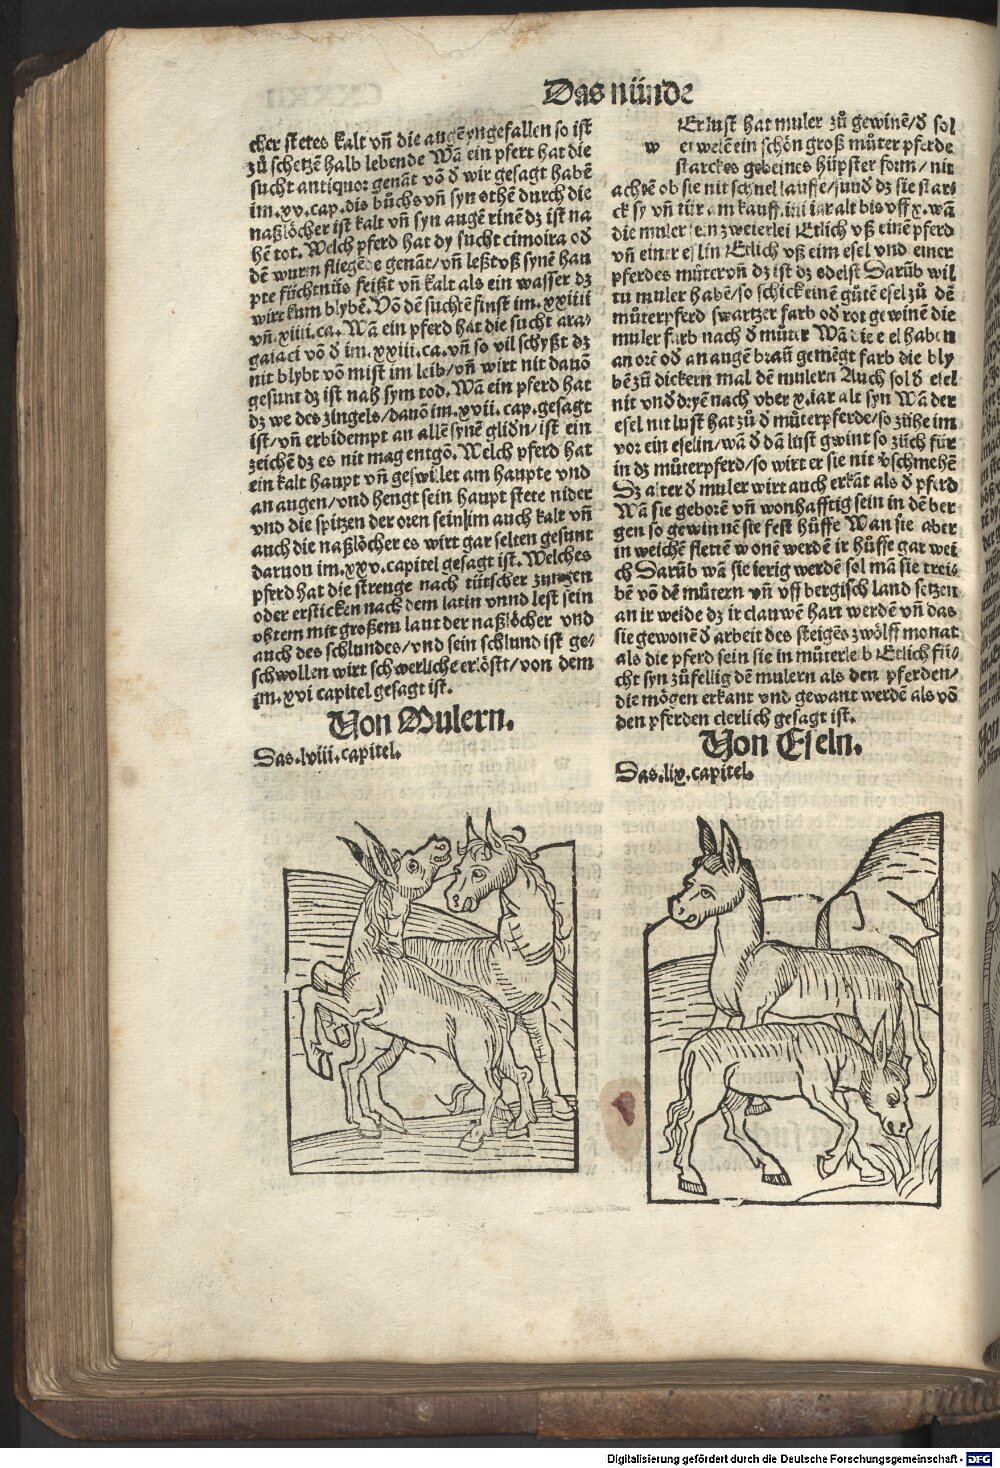 Das nünde
cher stetes kalt vñ die augē yngefallen so ist
zů schetzē halb lebende Wā ein pfert hat die
sucht antiquor genāt vō d̄ wir gesagt habē
im.xv.cap.dis bůchs vñ syn othē durch die
naßlöcher ist kalt vñ syn augē rinē dz ist na
hē tot. Welch pferd hat dy sucht cimoira od̄
dē wurm fliegēde genāt/vñ leßt vß synē hau
pte füchtnüs feißt vñ kalt als ein wasser dz
wirt kum blybē. Vō dē suchtē finst im.xxiiii
vñ.xiiii.ca. Wā ein pferd hat die sucht ara/
gaiaci vō d̄ im.xxiii.ca.vñ so vil schyßt dz
nit blybt vō mist im leib/vñ wirt nit dauō
gesunt dz ist nah sym tod. Wā ein pferd hat
dz we des zingels/dauō im.xvii.cap.gesagt
ist/vñ erbidempt an allē synē glidn/ist ein
zeichē dz es nit mag entgō. Welch pferd hat
ein kalt haupt vñ geswillet am haupte vnd
an augen/vnd hengt sein haupt stete nider
vnd die spitzen der oren sein im auch kalt vñ
auch die naßlöcher es wirt gar selten gesunt
daruon im.xxv.capitel gesagt ist. Welches
pferd hat die strenge nach tütscher zungen
oder ersticken nach dem latin vnnd lest sein
oßtem mit großem laut der naßlöcher vnd
auch des schlundes/vnd sein schlund ist ge/
schwollen wirt schwerliche erlöst/von dem
im.xvi capitel gesagt ist.
Von Mulern.
Das.lviii.capitel.
Er lust hat muler zů gewinē/d̄ sol
w erwelē ein schön groß můter pferde
starckes gebeines hüpster form/nit
achtē ob sie nit schnel lauffe/sund̄ dz sie star/
ck sy vñ tür am kauff.iiii iar alt bis vff x. wā
die muler sein zweierlei Etlich vß einē pferd
vñ einer eslin Etlich vß eim esel vnd einer
pferdes můter vñ dz ist dz edelst Darūb wil
tu muler habē/so schick einē gůtē esel zů dē
můterpferd swartzer farb od̄ rot gewinē die
muler farb nach d̄ můter Wā die esel haben
an orē od̄ an augē braū gemēgt farb die bly
bē zů dickern mal dē mulern Auch sol d̄ esel
nit vnd̄ dryē nach vber x.iar alt syn Wā der
esel nit lust hat zů d̄ můterpferde/so zühe im
vor ein eselin/wā d̄ dā lust gwint so züch für
in dz můterpferd/so wirt er sie nit vschmehē
Dz alter d̄ muler wirt auch erkāt als d̄ pferd
Wā sie geborē vñ wonhafftig sein in dē ber
gen so gewinnē sie fest hüffe Wan sie aber
in weichē flettē wonē werdē ir hüffe gar wei
ch Darūb wā sie ierig werdē sol mā sie trei/
bē vō dē můtern vñ vff bergisch land setzen
an ir weide dz ir clauwē hart werdē vñ das
sie gewonē d̄ arbeit des steigēs zwölff monat
als die pferd sein sie in můterleib Etlich füi/
cht syn zůfellig dē mulern als den pferden/
die mögen erkant vnd gewant werdē als vō
den pferden clerlich gesagt ist.
Von Eseln.
Das.lix.capitel.
Digitalisierung gefördert durch die Deutsche Forschungsgemeinschaft - DFG